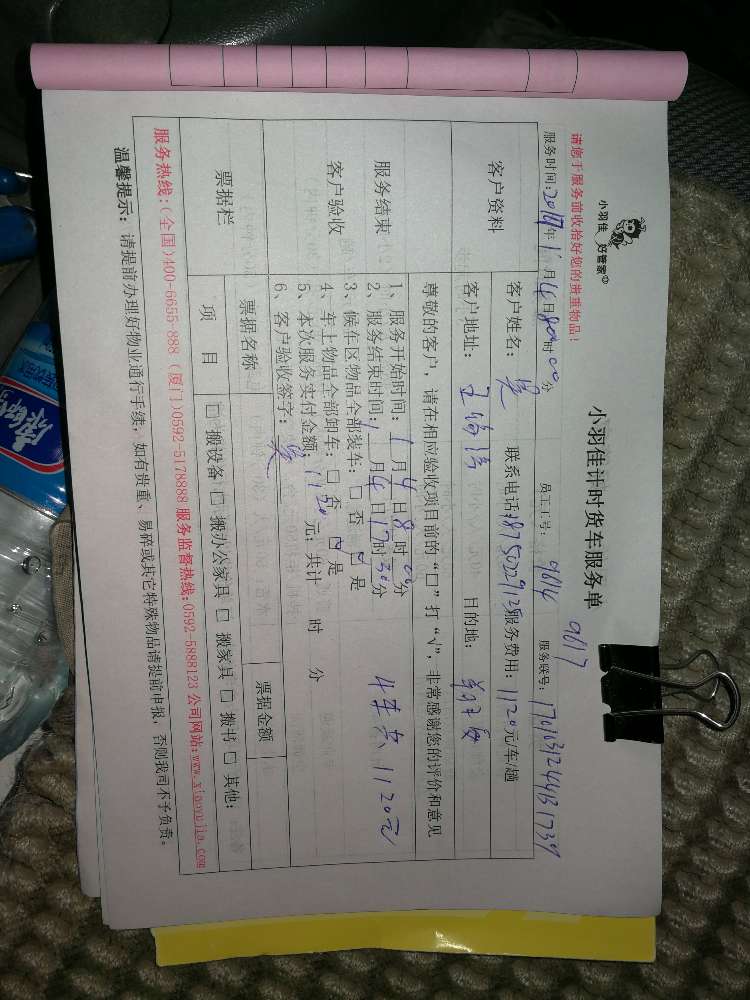 小羽佳 好管家
小羽佳计时货车服务单
9617
请您于服务前收拾好您的贵重物品!
服务时间:2017年1月4日8时00分 员工工号: 9614 服务联号:
客户资料
客户姓名: 吴 联系电话: 服务费用: 1120元/车/趟
客户地址: 目的地:
尊敬的客户,请在相应验收项目前的“□”打“√”,非常感谢您的评价和意见
服务结束
客户验收
1、服务开始时间: 1月4日8时00分
2、服务结束时间: 1月4日17时30分
3、候车区物品全部装车: □ 否 ☑ 是
4、车上物品全部卸车: □ 否 ☑ 是
5、本次服务实付金额: 1120 元; 共计 时 分
6、客户验收签字: 吴
4车共1120元
票据栏
票据名称 票据金额
项 目 □ 搬设备 □ 搬办公家具 □ 搬家具 □ 搬书 □ 其他:
服务热线:(全国)400-6655-888 (厦门)0592-5178888 服务监督热线:0592-5888123 公司网站:www.xiaoyujia.com
温馨提示: 请提前办理好物业通行手续,如有贵重、易碎或其它特殊物品请提前申报,否则我司不予负责。